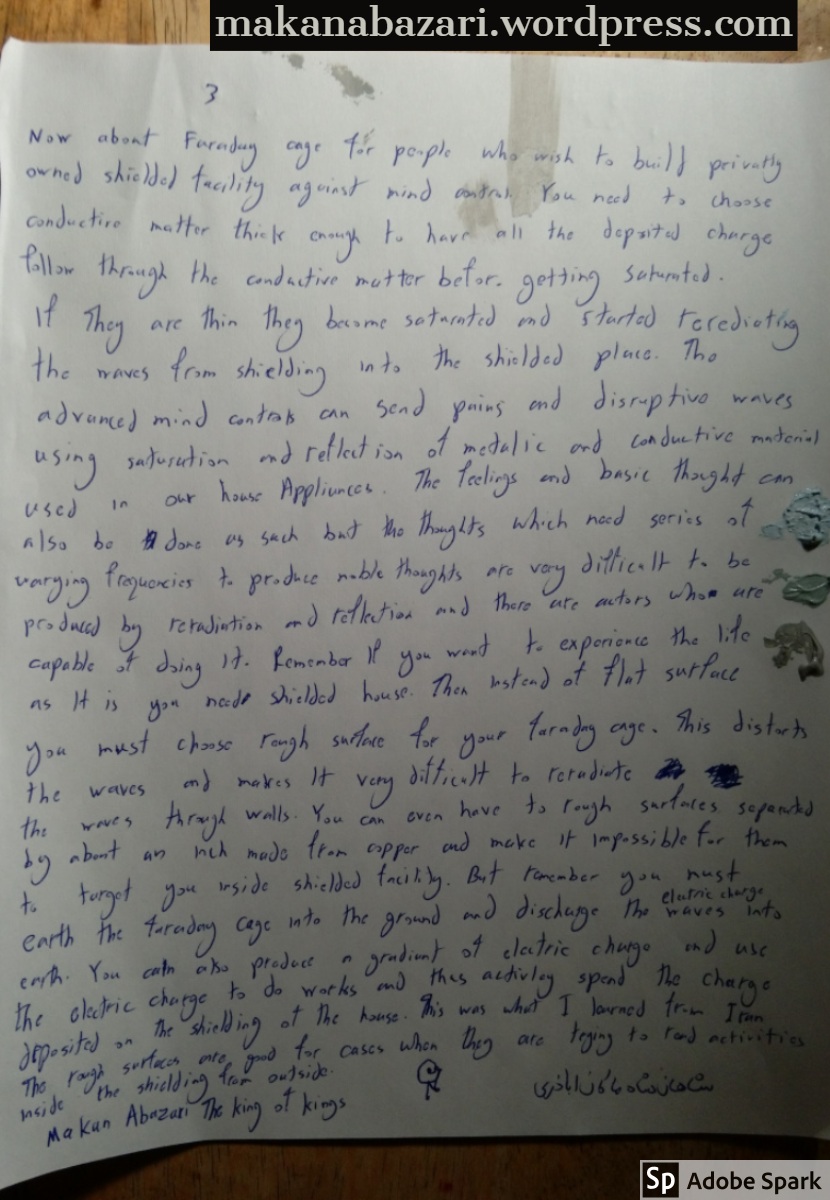 makanabazari.wordpress.com
3
Now about Faraday cage for people who wish to build privatly
owned shielded facility against mind control. You need to choose
conductive matter thick enough to have all the deposited charge
follow through the conductive matter befor. getting saturated.
If They are thin they become saturated and started rerediating
the waves from shielding into the shielded place. The
advanced mind controls can send pains and disruptive waves
using saturation and reflection of metalic and conductive material
used in our house Appliances. The feelings and basic thought can
also be done as such but the thoughts which need series of
varying frequencies to produce noble thoughts are very difficult to be
produced by reradiation and reflection and there are actors who are
capable of doing It. Remember If you want to experience the life
as It is you need shielded house. Then instead of flat surface
you must choose rough surface for your faraday cage. This distorts
the waves and makes It very difficult to reradiate
the waves through walls. You can even have to rough surfaces separated
by about an inch made from copper and make it impossible for them
to target you inside shielded facility. But remember you must
earth the faraday cage into the ground and discharge the electric charge waves into
earth. You can also produce a gradient of electric charge and use
the electric charge to do works and thus activley spend the charge
deposited on the shielding of the house. This was what I learned from Iran
The rough surfaces are good for cases when they are trying to read activities
inside the shielding from outside.
Makan Abazari The king of kings
شاهنشاه ماکان اباذری
Sp Adobe Spark